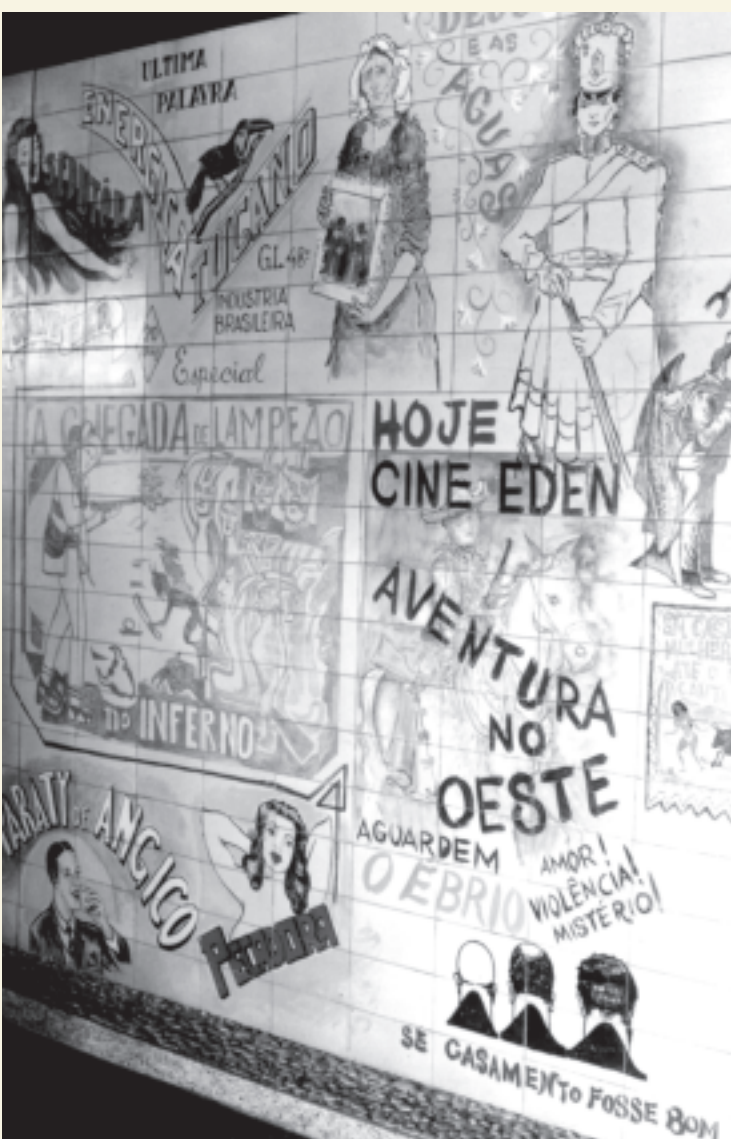 ULTIMA
PALAVRA
ENERGICA
TUCANO
GL 48º
INDUSTRIA
BRASILEIRA
Especial
E AS
AGUAS
A CHEGADA DE LAMPEÃO
NO INFERNO
HOJE
CINE EDEN
AVENTURA
NO
OESTE
AGUARDEM
O ÉBRIO
AMOR!
VIOLÊNCIA!
MISTÉRIO!
PARATY DE ANGICO
PECADORA
SE CASAMENTO FOSSE BOM